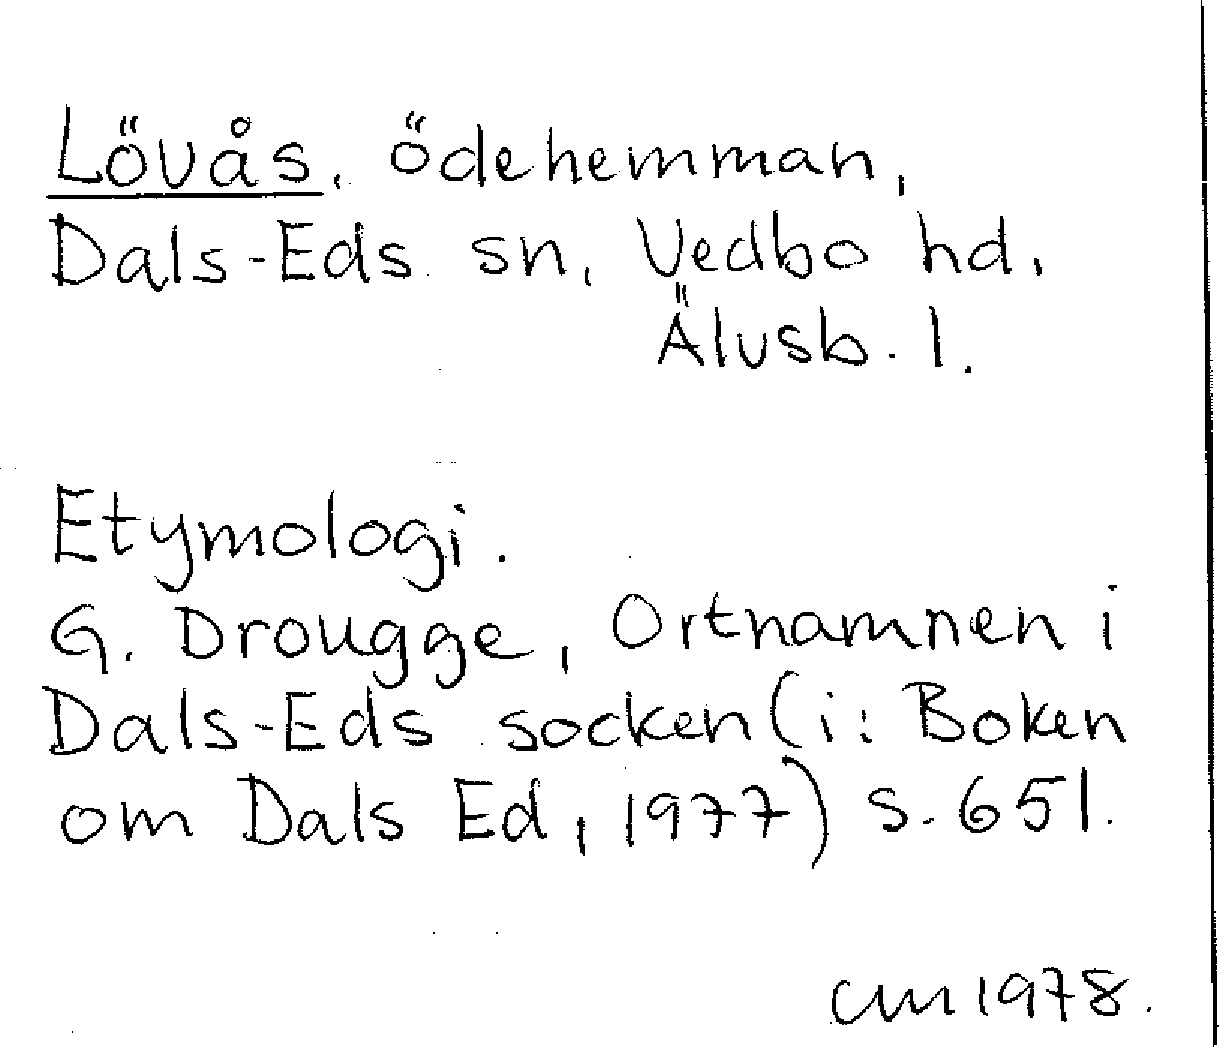 Lövås, ödehemman,
Dals-Eds sn, Vedbo hd,
Älvsb. l.
Etymologi.
G. Drougge, Ortnamnen i
Dals-Eds socken (i: Boken
om Dals Ed, 1977) s. 651.
cm 1978.